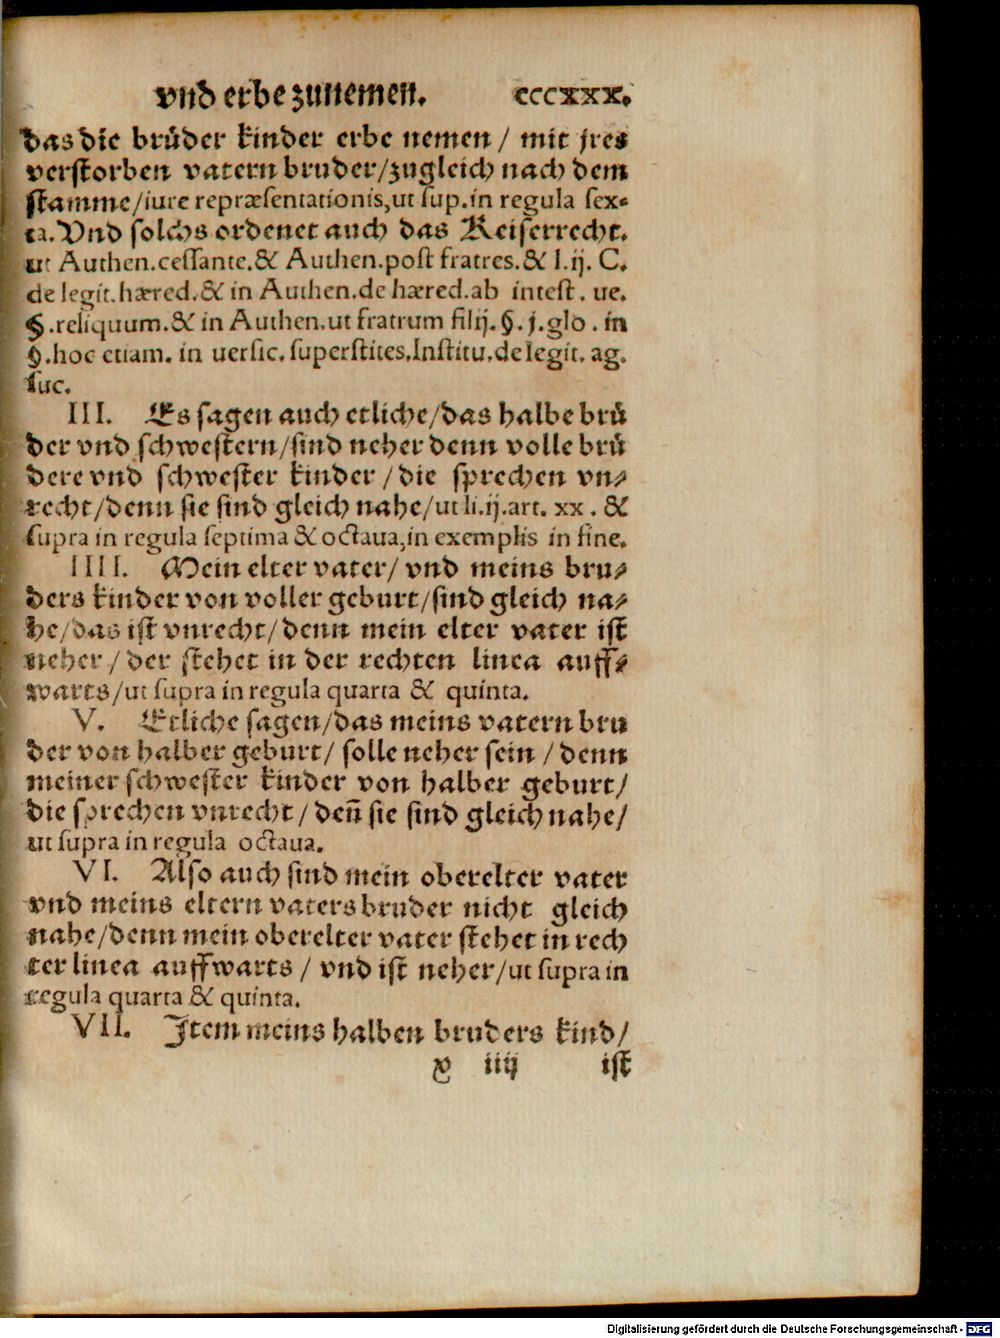 vnd erbe zunemen. cccxxx.
das die brůder kinder erbe nemen / mit jres
verstorben vatern bruder/zugleich nach dem
stamme/iure repræsentationis,ut sup.in regula sex-
ta.Vnd solchs ordenet auch das Keiserrecht.
ut Authen.cessante.& Authen.post fratres.& l.ij. C.
de legit.hæred.& in Authen.de hæred.ab intest. ue.
§.reliquum.& in Authen.ut fratrum filij.§.j.glo. in
§.hoc etiam. in uersic. superstites.Institu.de legit. ag.
suc.
III. Es sagen auch etliche/das halbe brů
der vnd schwestern/sind neher denn volle brů
dere vnd schwester kinder / die sprechen vn⸗
recht/denn sie sind gleich nahe/ut li.ij.art. xx. &
supra in regula septima & octaua,in exemplis in fine.
IIII. Mein elter vater/ vnd meins bru⸗
ders kinder von voller geburt/sind gleich na⸗
he/das ist vnrecht/denn mein elter vater ist
neher / der stehet in der rechten linea auff⸗
warts/ut supra in regula quarta & quinta.
V. Etliche sagen/das meins vatern bru
der von halber geburt/ solle neher sein / denn
meiner schwester kinder von halber geburt/
die sprechen vnrecht / deñ sie sind gleich nahe/
ut supra in regula octaua.
VI. Also auch sind mein oberelter vater
vnd meins eltern vaters bruder nicht gleich
nahe/denn mein oberelter vater stehet in rech
ter linea auffwarts / vnd ist neher/ut supra in
regula quarta & quinta.
VII. Item meins halben bruders kind/
x iiij ist
Digitalisierung gefördert durch die Deutsche Forschungsgemeinschaft - DFG